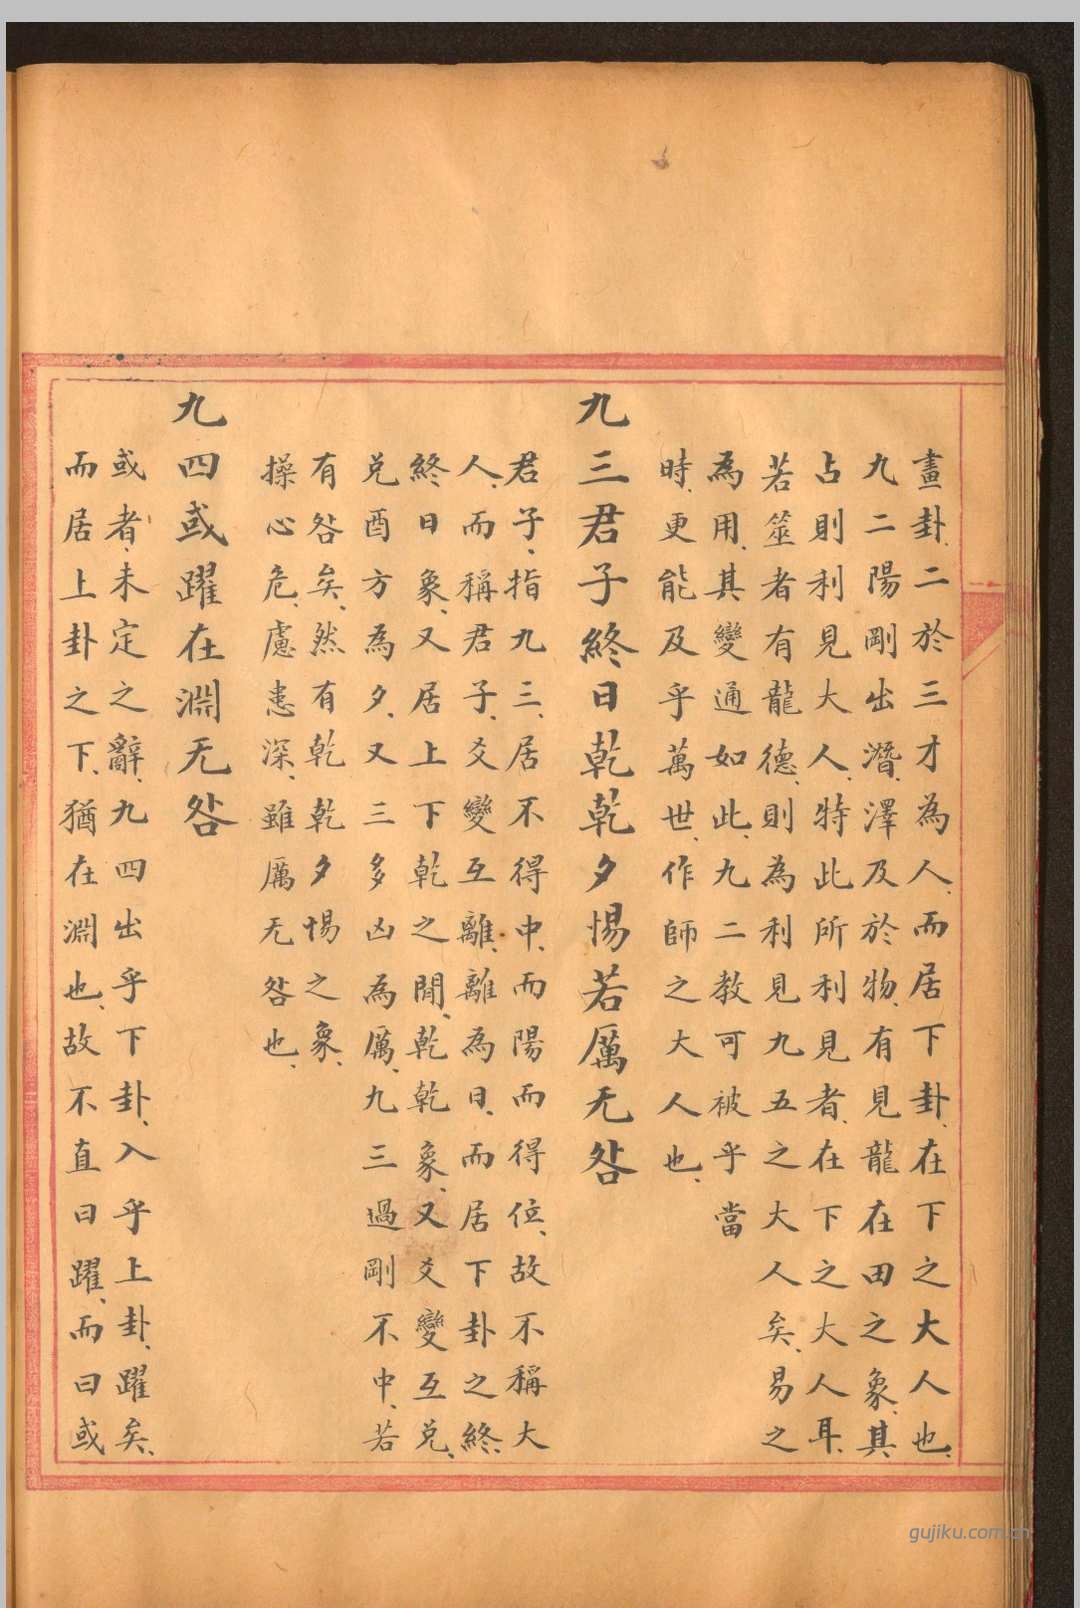 畫卦、二於三才為人、而居下卦、在下之大人也、
九二陽剛出潛、澤及於物、有見龍在田之象、其
占則利見大人、特此所利見者、在下之大人耳、
若筮者有龍德、則為利見九五之大人矣、易之
為用、其變通如此、九二教可被乎當
時、更能及乎萬世、作師之大人也、
九三君子終日乾乾夕惕若厲无咎
君子、指九三、居不得中、而陽而得位、故不稱大
人、而稱君子、爻變互離、離為日、而居下卦之終、
終日象、又居上下乾之閒、乾乾象、又爻變互兑、
兑酉方為夕、又三多凶為厲、九三過剛不中、若
有咎矣、然有乾乾夕惕之象、
操心危、慮患深、雖厲无咎也、
九四或躍在淵无咎
或者、未定之辭、九四出乎下卦、入乎上卦、躍矣、
而居上卦之下、猶在淵也、故不直曰躍、而曰或
gujiku.com.cn